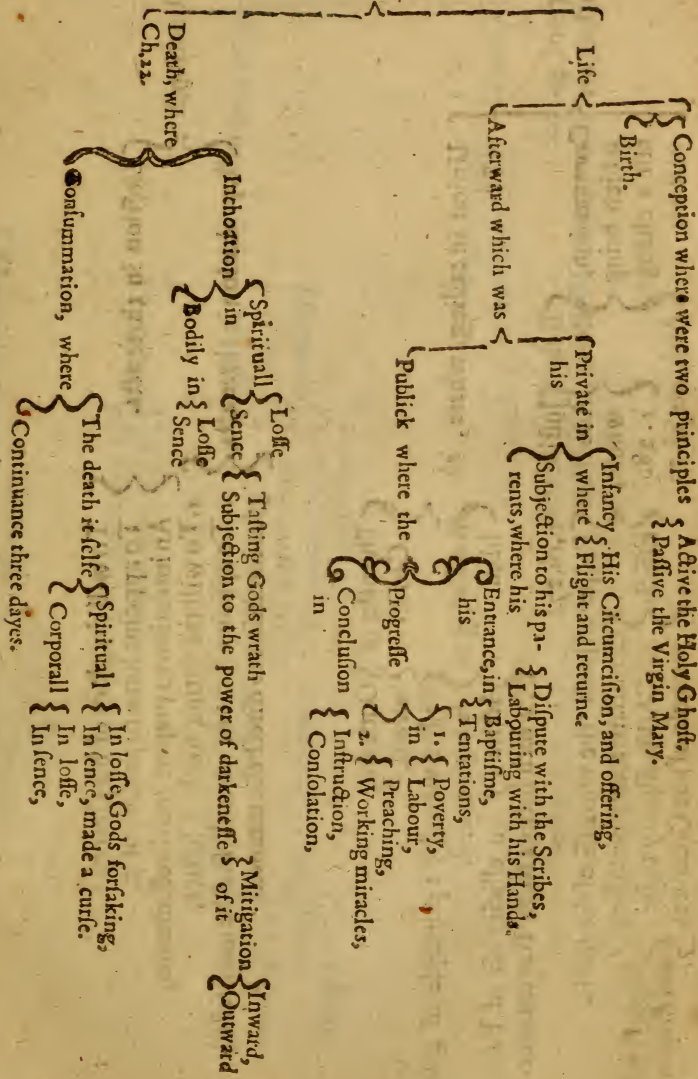 Life
Conception where were two principles
Active the Holy Ghoſt.
Paſſive the Virgin Mary.
Birth.
Afterward which was
Private in
his
Infancy
where
His Circumciſion, and offering,
Flight and returne.
Subjection to his pa-
rents, where his
Diſpute with the Scribes,
Labouring with his Hands.
Publick where the
Entrance, in
his
Baptiſme,
Tentations,
Progreſſe
in
1.
Poverty,
Labour,
2.
Preaching,
Working miracles,
Concluſion
in
Inſtruction,
Conſolation,
Death, where
Ch, 22.
Inchoation
in
Spirituall
Loſſe
Sence
Taſting Gods wrath
Subjection to the power of darkeneſſe
Mitigation
of it
Inward,
Outward
Bodily in
Loſſe
Sence
Conſummation, where
The death it ſelfe
Spirituall
In loſſe, Gods forſaking,
In ſence, made a curſe.
Corporall
In loſſe,
In ſence,
Continuance three dayes.